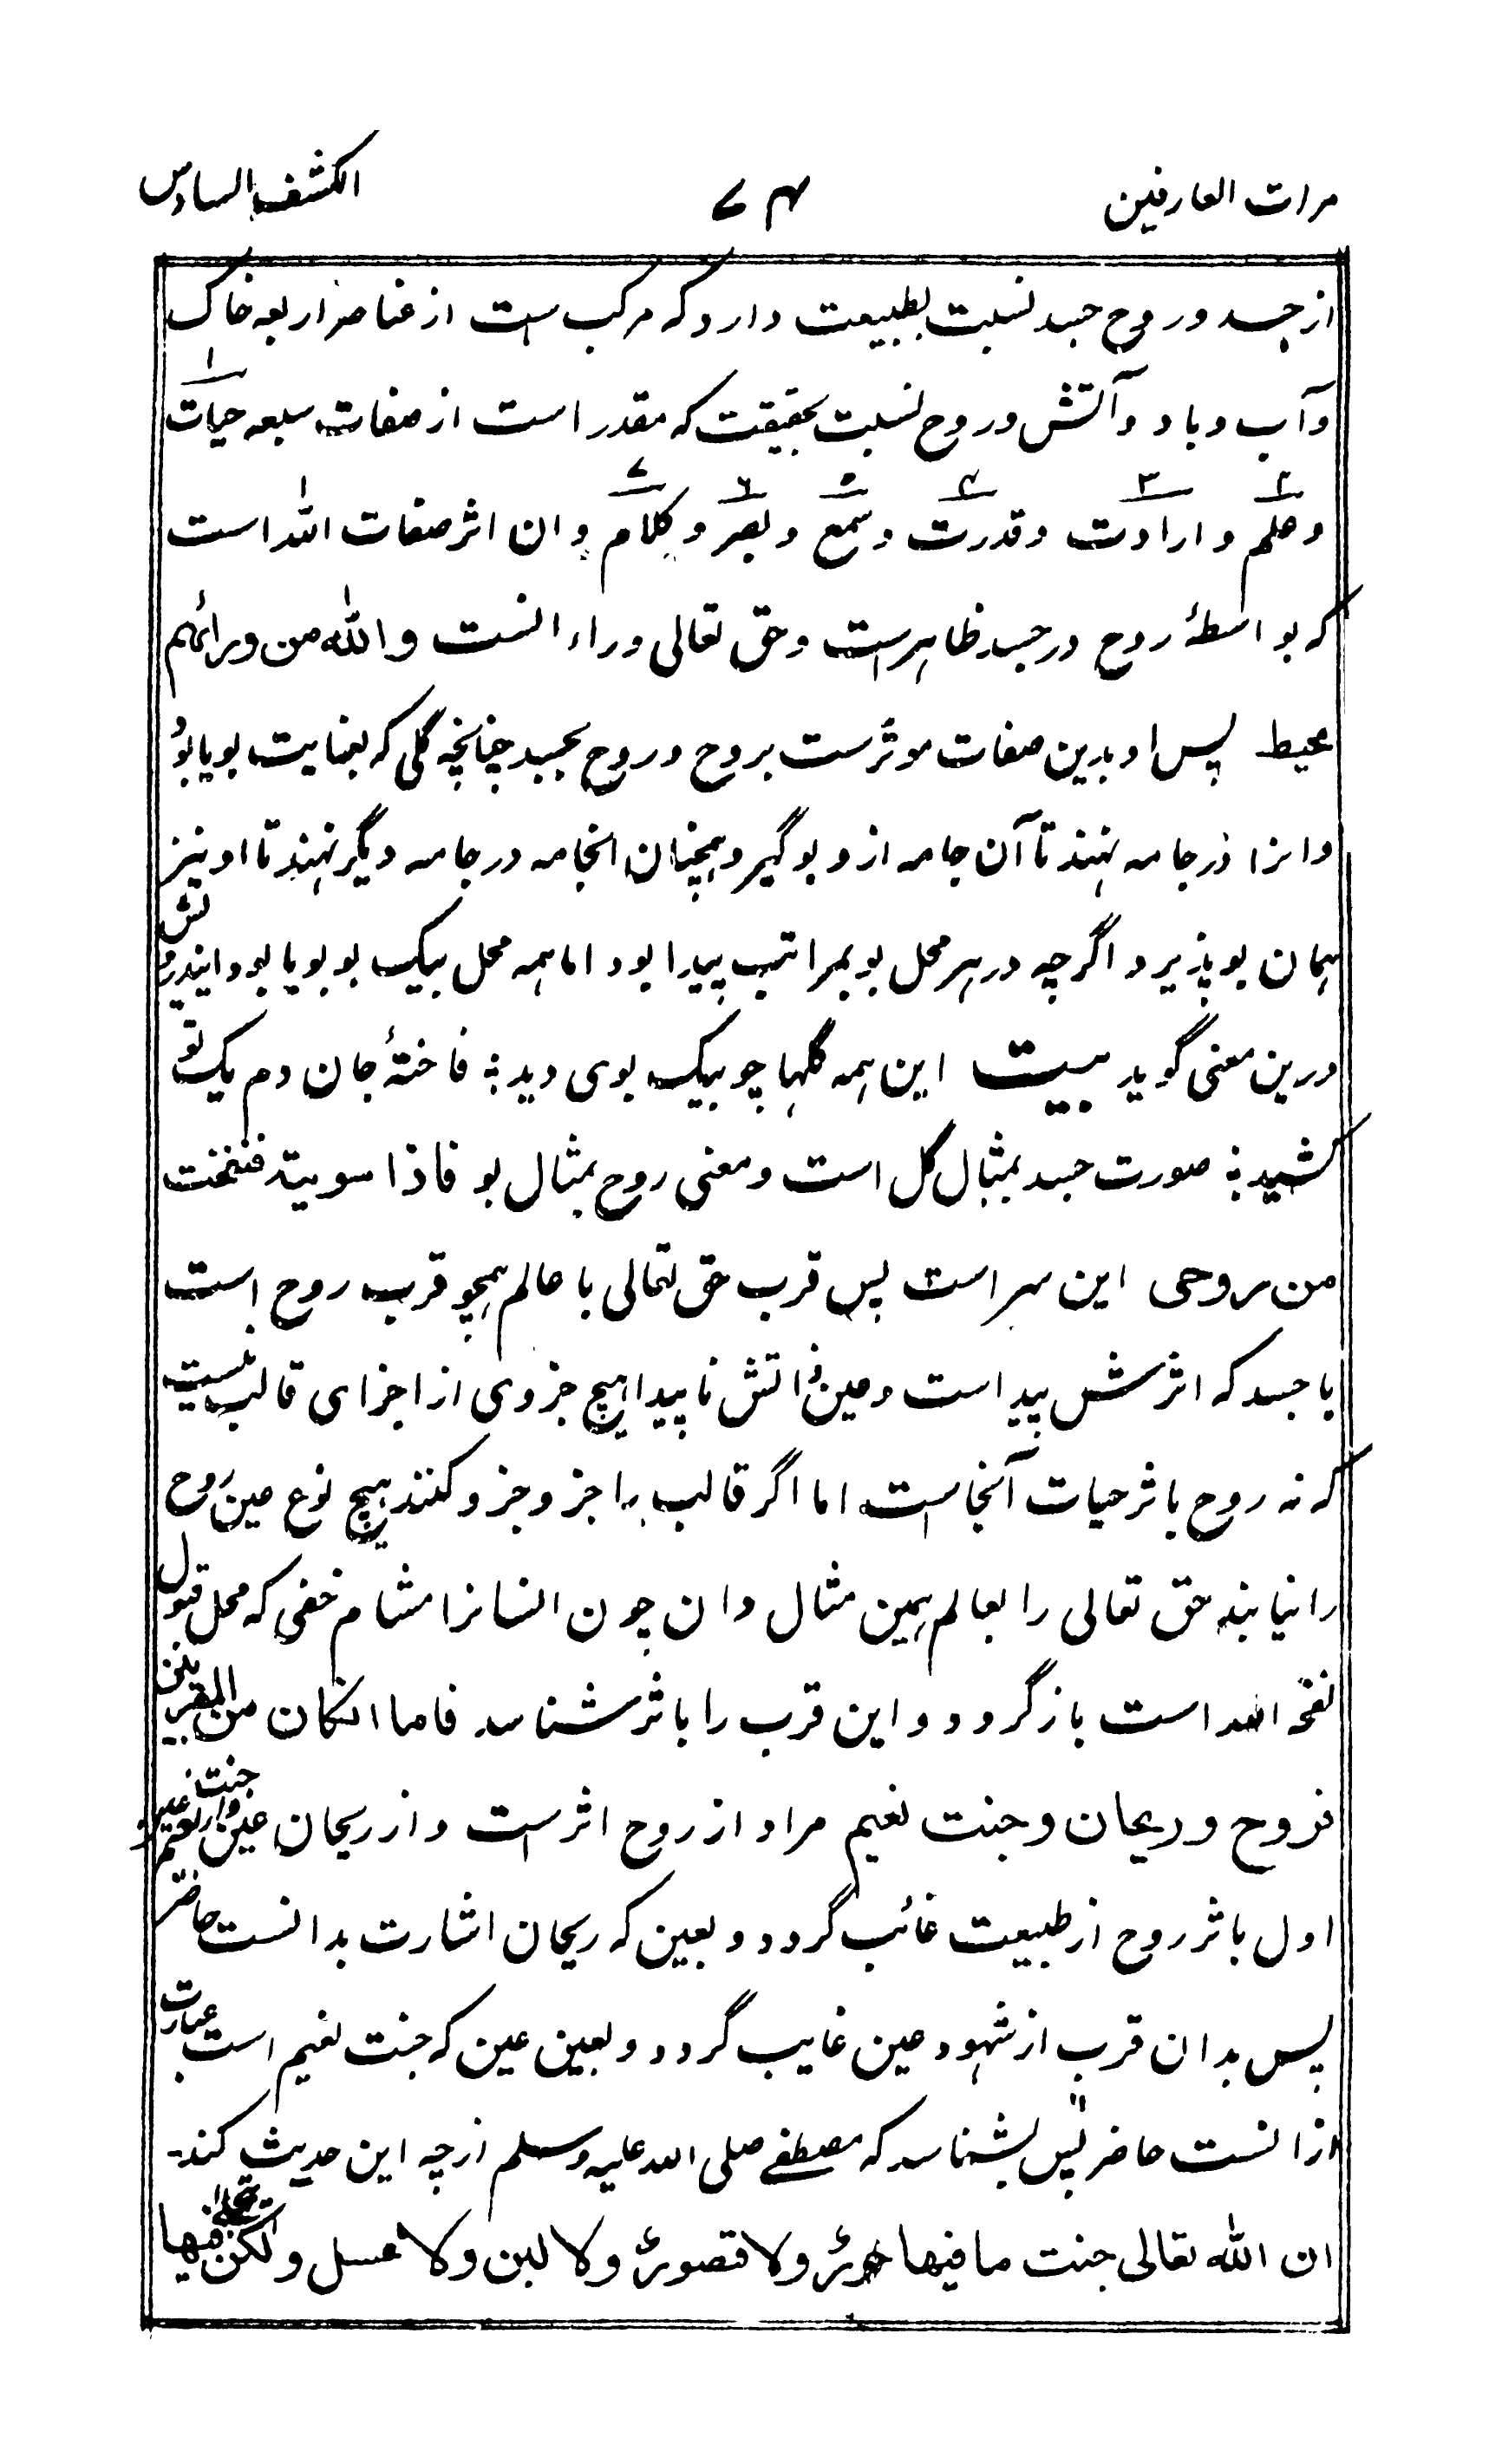 مرات العارفین ۷۴ الکشف السادس
از جسد و روح جسد نسبت بطبیعت دارد که مرکب ست از عناصر اربعه خاک
و آب و باد و آتش و روح نسبت بحقیقت که مقدر است از صفات سبعه حیات ۱
و علم ۲ و ارادت ۳ و قدرت ۴ و سمع ۵ و بصر ۶ و کلام ۷ و ان اثر صفات الله است
که بواسطهٔ روح در جسد ظاهر ست و حق تعالی وراء انست والله من ورائهم
محیط پس او بدین صفات موثرست بروح و روح بجسد چنانچه گلی که بغایت بویا بُوُ
و انرا در جامه نهند تا آن جامه ازو بو گیرد و همچنان انجامه در جامه دیگر نهند تا او نیز
همان بو پذیرد اگرچه در هر محل بو بمراتب پیدا بود اما همه محل بیک بو بویا بود
درین معنی گوید بیت این همه گلها چو بیک بوی دید ؛ فاختهٔ جان دم یک تو
کشید ؛ صورت جسد بمثال گل است و معنی روح بمثال بو فاذا سویته فنفخت
من روحی این سر است پس قرب حق تعالی با عالم همچو قرب روح است
با جسد که اثرش پیداست و عین ذاتش ناپیدا هیچ جزوی از اجزای قالب نیست
که نه روح باثر حیات آنجاست اما اگر قالب را جزو جزو کنند هیچ نوع عین روح
را نیابند حق تعالی را بعالم همین مثال دان چون انسانرا مشام خفی که محل قبول
نفخه الله است باز گردد و این قرب را باثر شناسد فاما انکان من المقربین
فروح و ریحان و جنت نعیم مراد از روح اثرست و از ریحان عین و از جنت نعیم عین
اول باثر روح از طبیعت غائب گردد و بعین که ریحان اشارت بدانست حاضر
پس بدان قرب از شهود عین غایب گردد و بعین عین که جنت نعیم است عبارت
ازانست حاضر پس بشناسد که مصطفے صلی الله علیه وسلم از چه این حدیث کند-
ان الله تعالی جنت ما فیها حورٌ ولا قصورٌ ولا لبن ولا عسل ولکن فیها